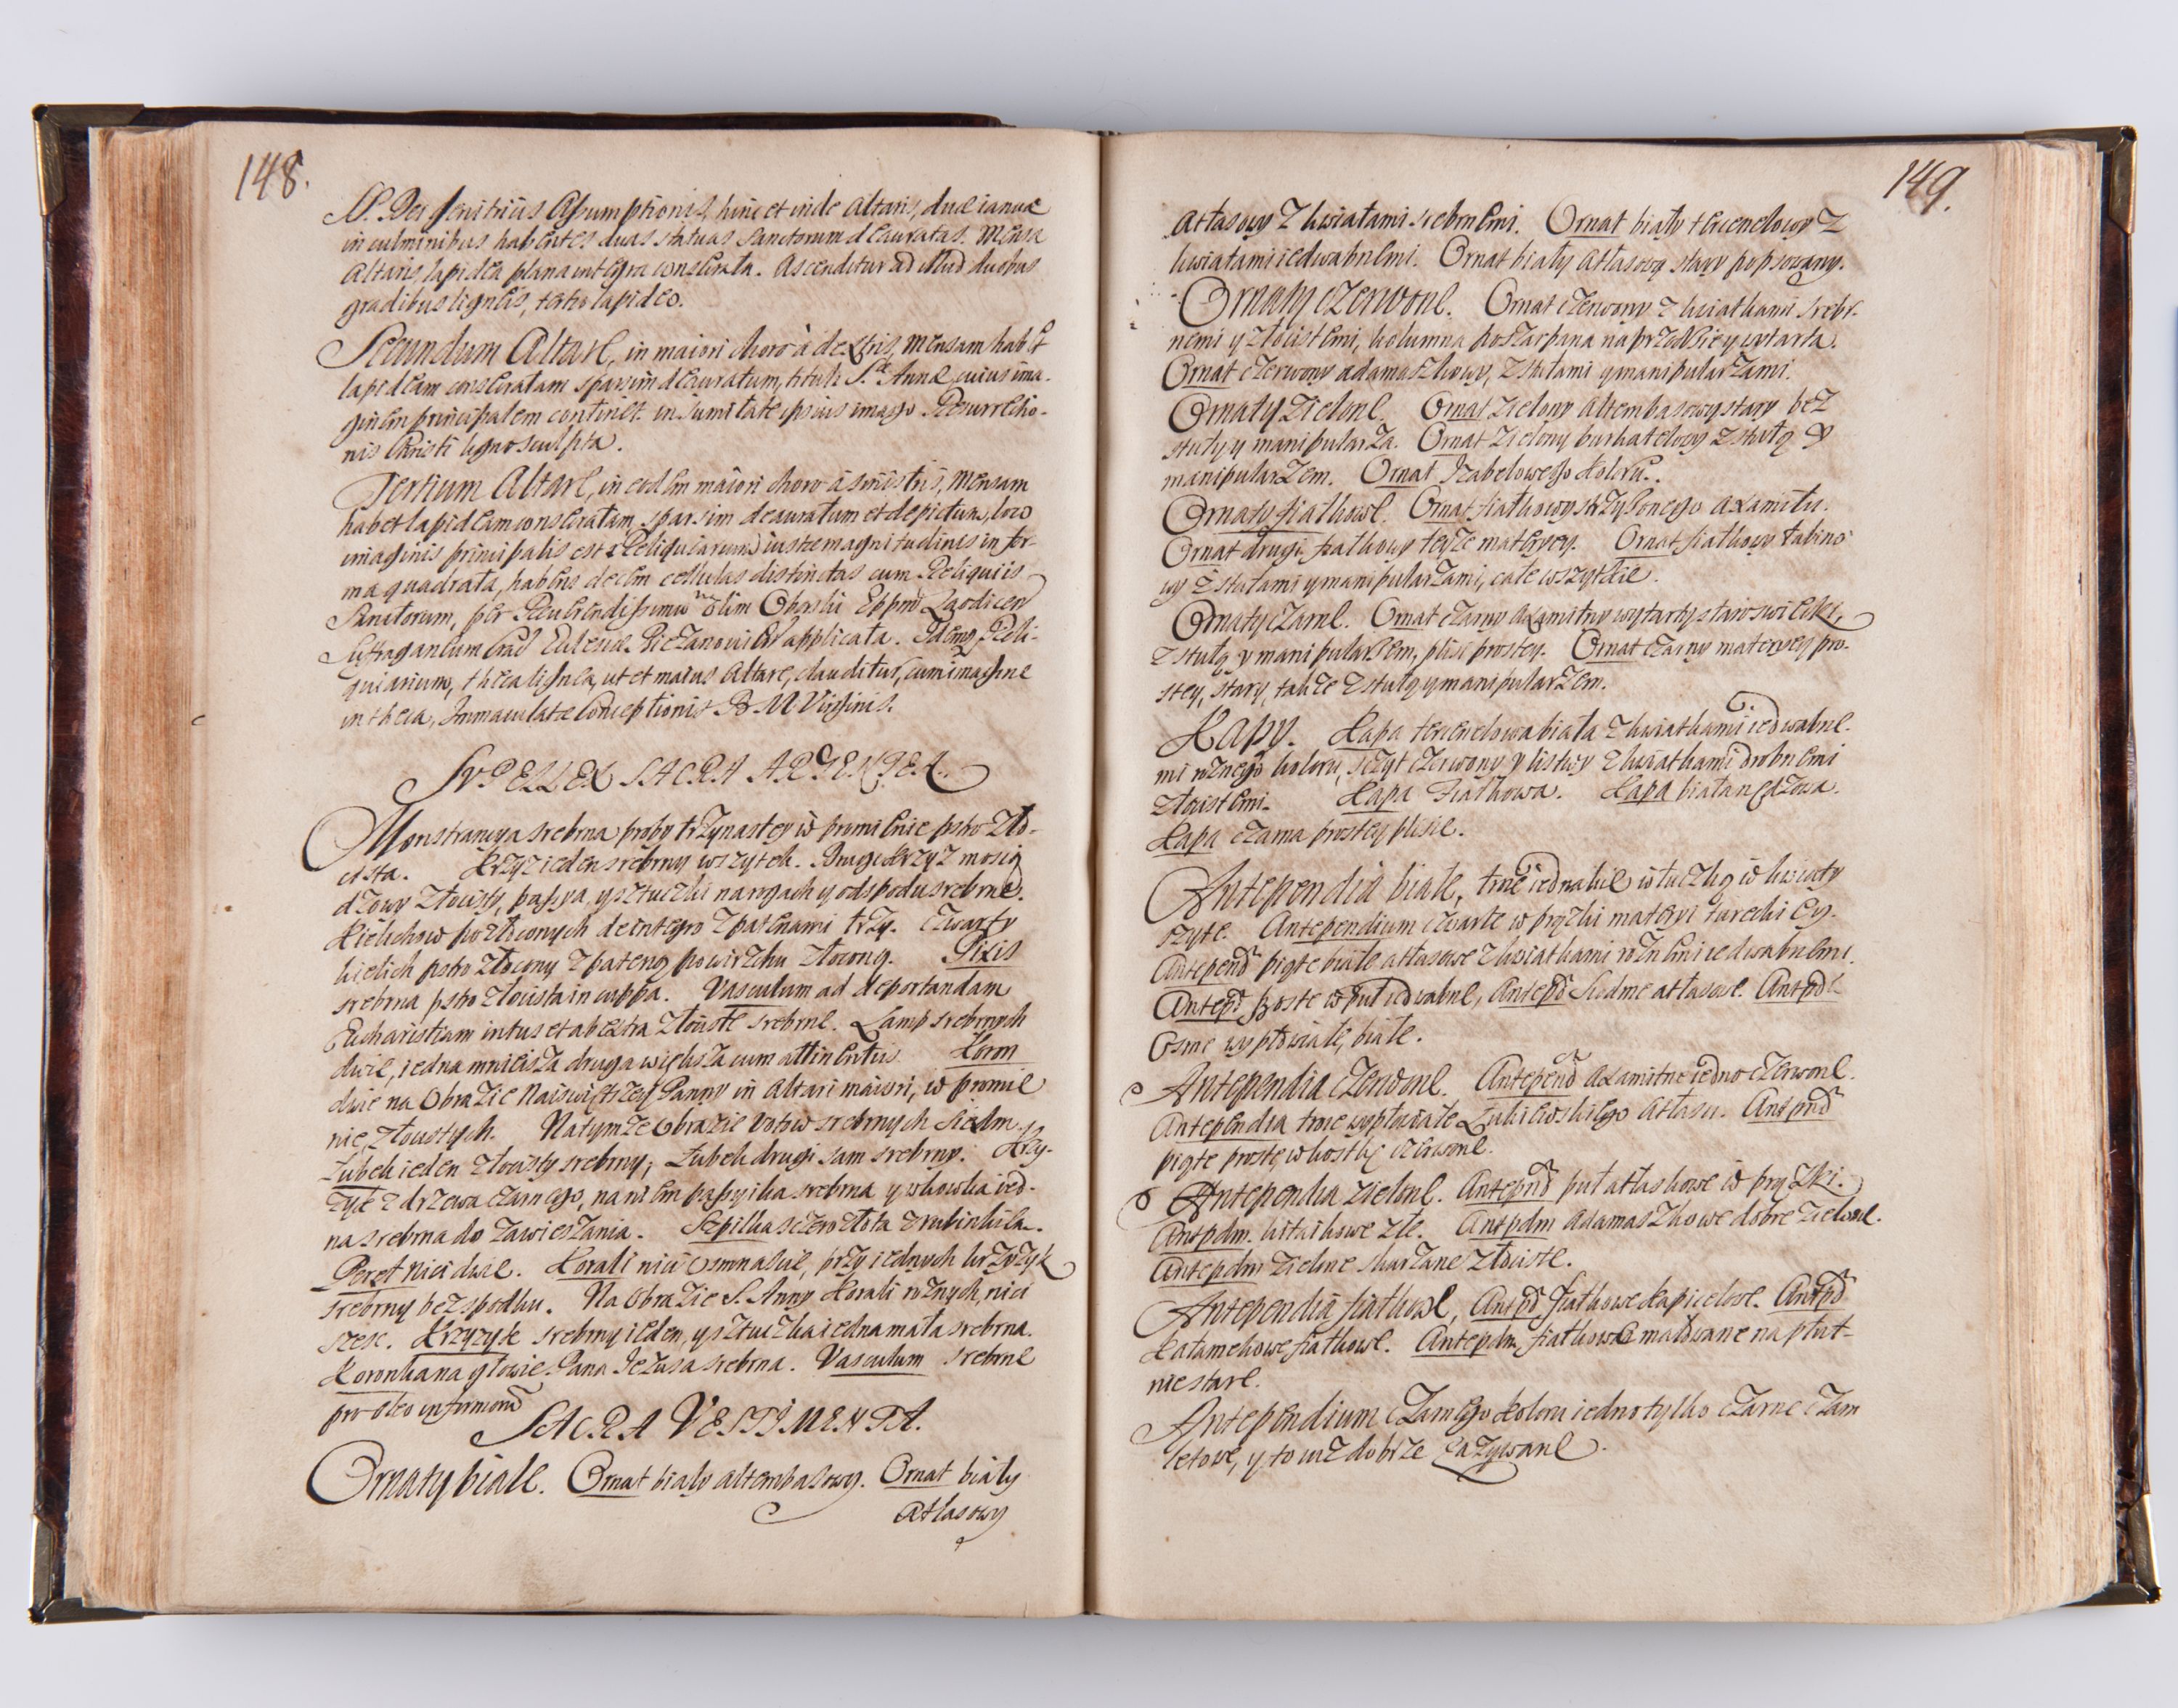 148.
S. Dei Genitricis Assumptionis, hinc et inde Altaris, duae ianuae
in culminibus habentes duas statuas Sanctorum deauratas. Mensa
Altaris lapidea plana integra consecrata. Ascenditur ad illud duobus
gradibus ligneis, tertio lapideo.
Secundum Altare, in maiori choro à dextris, Mensam habet
lapideam consecratam sparsim deauratum, tituli S. Annae, cuius ima-
ginem principalem continet. in sumitate ipsius imago Resurrectio-
nis Christi ligno sculpta.
Tertium Altare, in eodem maiori choro à sinistris, Mensam
habet lapideam consecratam, sparsim deauratum et depictum, loco
imaginis principalis est Reliquiarum iustae magnitudinis in for-
ma quadrata, habens decem cellulas distinctas cum Reliquiis
Sanctorum, per Reverendissimum olim Oborski Eppum Laodicen
Suffraganeum Crac Ecclesiae Pieczanoviten applicata. Idemq Reli-
quiarium, theca lignea, ut et maius Altare, clauditur, cum imagine
in theca, Immaculatae Conceptionis B M Virginis.
SVPELLEX SACRA ARGENTEA.
Monstrancya srebrna proby trzynastey w promienie pstro zło-
cista. Krzyz ieden srebrny wszytek. Drugi Krzyz mosią
dzowy złocisty, passya, y sztuczki na rogach y od spodu srebrne.
Kielichow pozłoconych de integro z patenami trzy. Czwarty
kielich pstro złocony z pateną powierzchu złoconą. Pixis
srebrna pstro złocista in cuppa. Vasculum ad deportandam
Eucharistiam intus et ab extra złociste srebrne. Lamp srebrnych
dwie, iedna mnieisza druga większa cum attinentiis. Koron
dwie na Obrazie Naiswiętrzey Panny in Altari maiori, w promie
nie, złocistych. Na tymze Obrazie Votow srebrnych Siedm.
Łubek ieden złocisty srebrny, Łubek drugi sam srebrny. Krzy-
zyk z drzewa czarnego, na niem passyika srebrna y skowka ied-
na srebrna do zawieszania. Szpilka szczero złota z rubinkiem.
Pereł nici dwie. Korali nici osmnascie, przy iednych krzyzyk
srebrny bez spodku. Na Obrazie S. Anny Korali roznych, nici
szesc. Krzyzyk srebrny ieden, y sztuczka iedna mała srebrna.
Koronka na głowie Pana Jezusa srebrna. Vasculum srebrne
pro oleo infirmorum
SACRA VESTIMENTA.
Ornaty białe. Ornat biały altembasowy. Ornat biały
Atłasowy
149.
Atłasowy z kwiatami srebrnemi. Ornat biały tercenelowy z
kwiatami iedwabnemi. Ornat biały Atłasowy stary popsowany.
Ornaty czerwone. Ornat czerwony z kwiatkami srebr-
nemi y złocistemi, kolumna poszarpana na przodkie y wytarta.
Ornat czerwony adamaszkowy, z stułami y manipularzami.
Ornaty zielone. Ornat zielony Altembasowy stary bez
stuły y manipularza. Ornat zielony burkatelowy z stułą y
manipularzem. Ornat Izabelowego koloru.
Ornaty fiałkowe. Ornat fiałkowy strzyzonego axamitu.
Ornat drugi fiałkowy teyze materyey. Ornat fiałkowy tabino
wy z stułami y manipularzami, całe wszytkie.
Ornaty czarne. Ornat czarny axamitny wytarty staroswiecki,
z stułą y manipularzem, plisie prostey. Ornat czarny materyey pro-
stey, stary, takze z stułą y manipularzem.
Kapy. Kapa tercenelowa biała z kwiatkami iedwabne-
mi roznego koloru, szczyt czerwony y listwy z kwiatkami drobnemi
złocistemi. Kapa Fiałkowa. Kapa biała nędzowa.
Kapa czarna prostey plisie.
Antependia białe, troie iednakie w tuczką w kwiaty
szyte. Antependium czwarte w prążki materyi tureckiey.
Antepend piąte białe atłasowe z kwiatkami roznemi iedwabnemi.
Antepd szoste w puł iedwabne, Antepd Siodme atłasowe. Antpd
Osme wypłowiałe, białe.
Antependia czerwone. Antepend Axamitne iedno czerwone.
Antependia troie wypłowiałe Atłasu. Antpnd
piąte proste w kostkę czerwone.
Antependia zielone. Antepnd puł atłaskowe w prążki.
Antpdm. kitaikowe złe. Antpdm Adamaszkowe dobre zielone.
Antepdm zielone skurzane złociste.
Antependia fiałkowe, Antpd fiałkowe kapicelowe. Antpd
Katamekowe fiałkowe. Antepdm fiałkowe malowane na płut-
nie stare.
Antependium czarnego koloru iedno tylko czarne czam
letowe, y to iuz dobrze zazywane.